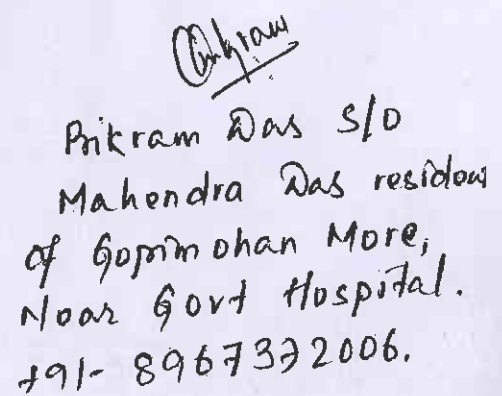 Bikram Das S/O
Mahendra Das residow
of Gopimohan More,
Near Govt Hospital.
+91- 8967372006.